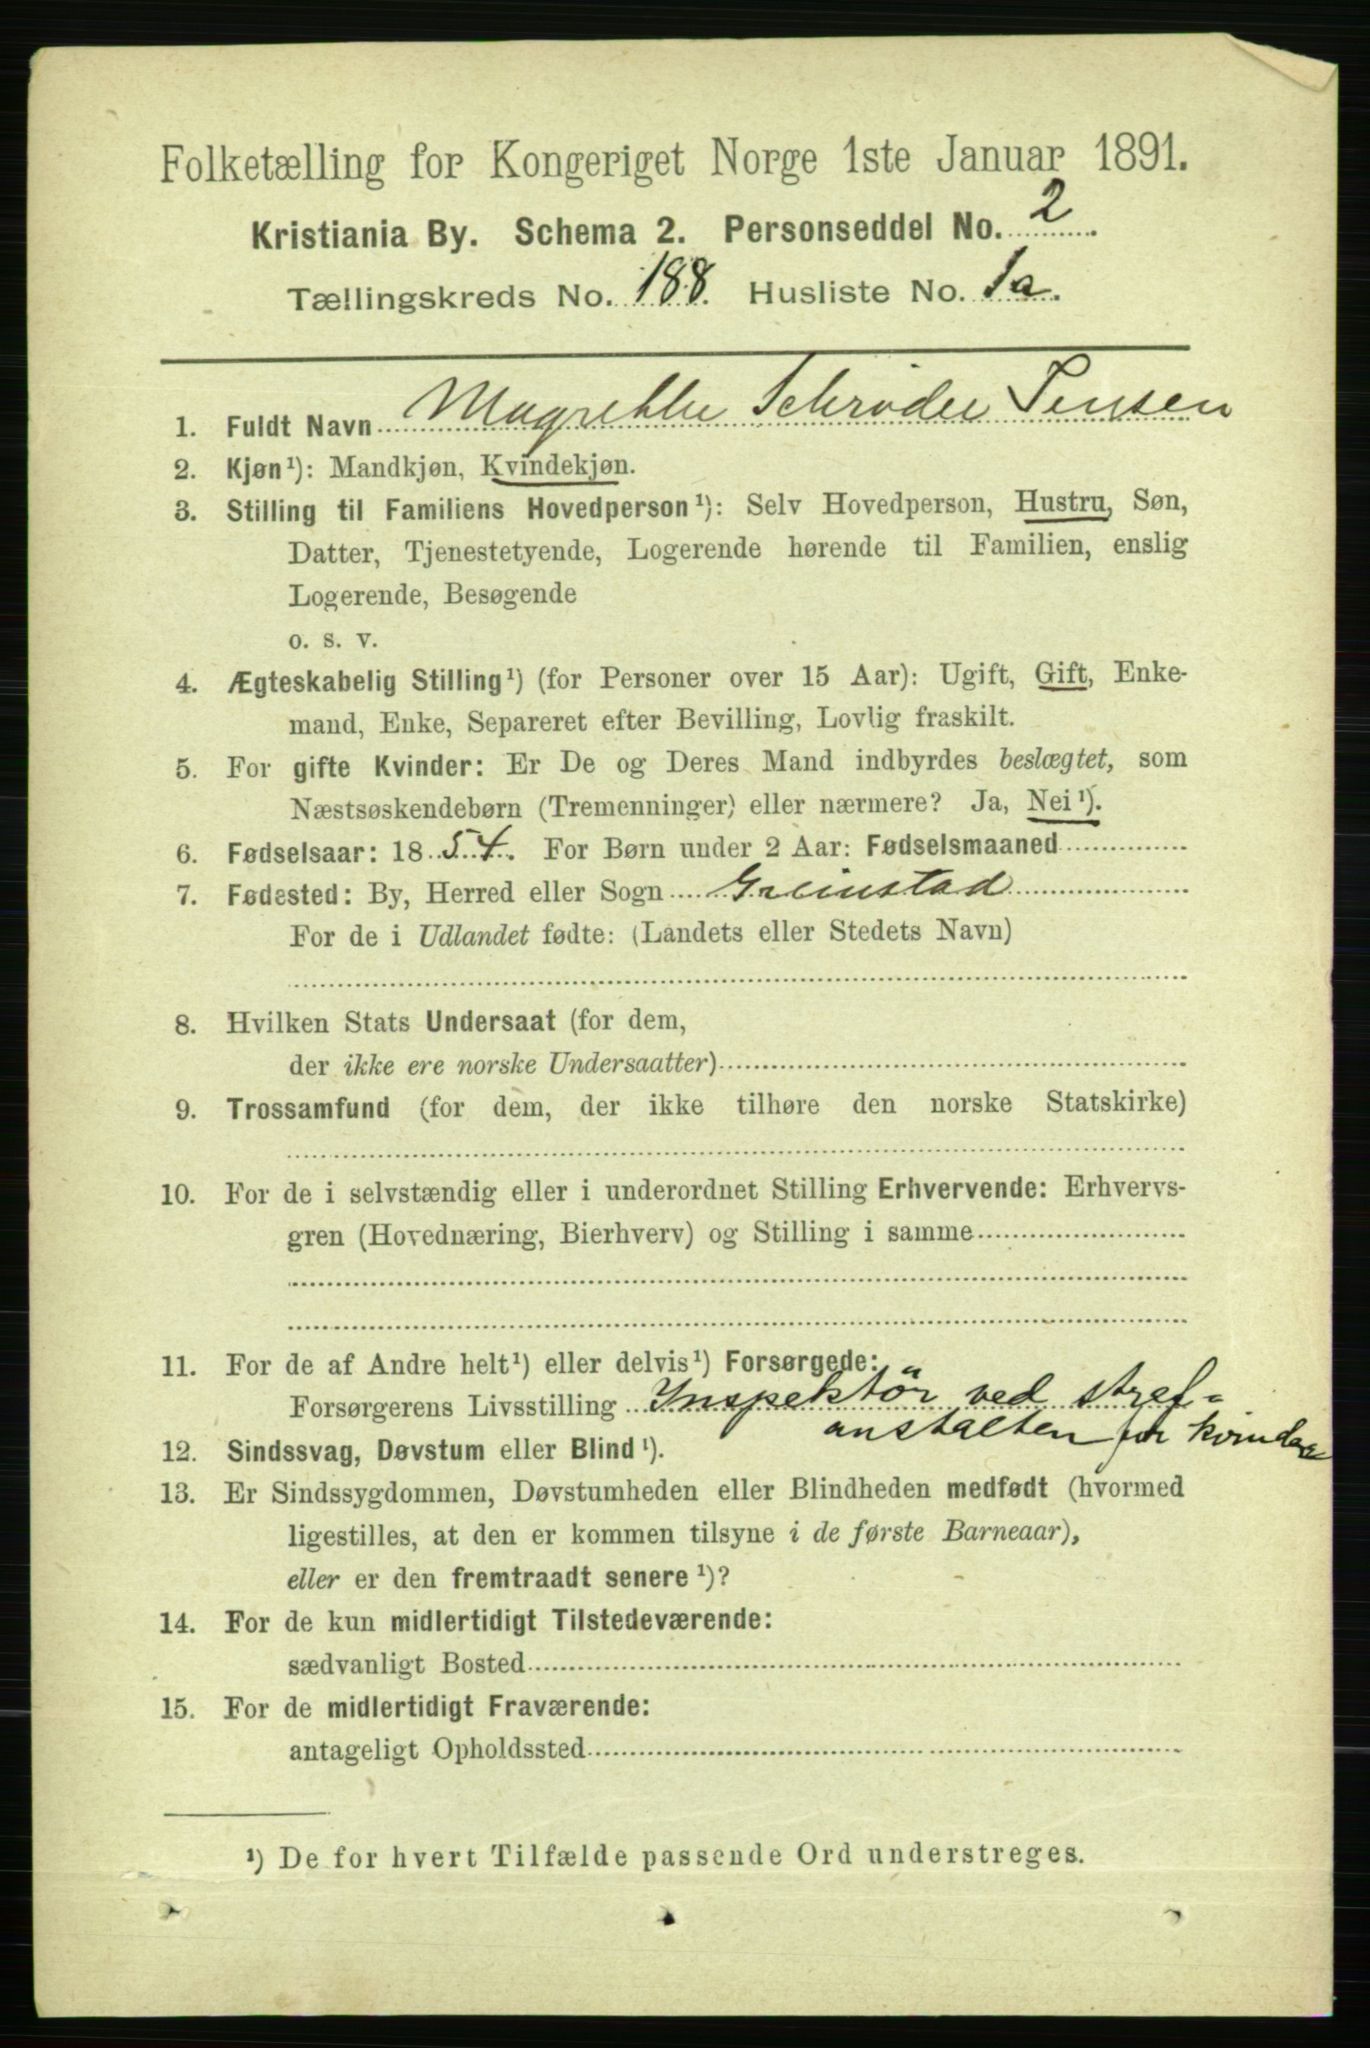 Folketælling for Kongeriget Norge 1ste Januar 1891.
Kristiania By. Schema 2. Personseddel No. 2.
Tællingskreds No. 188. Husliste No. 1a.
1. Fuldt Navn Magrethe Schrøder Jensen
2. Kjøn¹): Mandkjøn, Kvindekjøn.
3. Stilling til Familiens Hovedperson¹): Selv Hovedperson, Hustru, Søn,
Datter, Tjenestetyende, Logerende hørende til Familien, enslig
Logerende, Besøgende
o. s. v.
4. Ægteskabelig Stilling¹) (for Personer over 15 Aar): Ugift, Gift, Enke-
mand, Enke, Separeret efter Bevilling, Lovlig fraskilt.
5. For gifte Kvinder: Er De og Deres Mand indbyrdes beslægtet, som
Næstsøskendebørn (Tremenninger) eller nærmere? Ja, Nei¹).
6. Fødselsaar: 1854. For Børn under 2 Aar: Fødselsmaaned
7. Fødested: By, Herred eller Sogn Grimstad
For de i Udlandet fødte: (Landets eller Stedets Navn)
8. Hvilken Stats Undersaat (for dem,
der ikke ere norske Undersaatter)
9. Trossamfund (for dem, der ikke tilhøre den norske Statskirke)
10. For de i selvstændig eller i underordnet Stilling Erhvervende: Erhvervs-
gren (Hovednæring, Bierhverv) og Stilling i samme
11. For de af Andre helt¹) eller delvis¹) Forsørgede:
Forsørgerens Livsstilling Inspektör ved straf-
anstalten for kvinder
12. Sindssvag, Døvstum eller Blind¹).
13. Er Sindssygdommen, Døvstumheden eller Blindheden medfødt (hvormed
ligestilles, at den er kommen tilsyne i de første Barneaar),
eller er den fremtraadt senere¹)?
14. For de kun midlertidigt Tilstedeværende:
sædvanligt Bosted
15. For de midlertidigt Fraværende:
antageligt Opholdssted
¹) De for hvert Tilfælde passende Ord understreges.